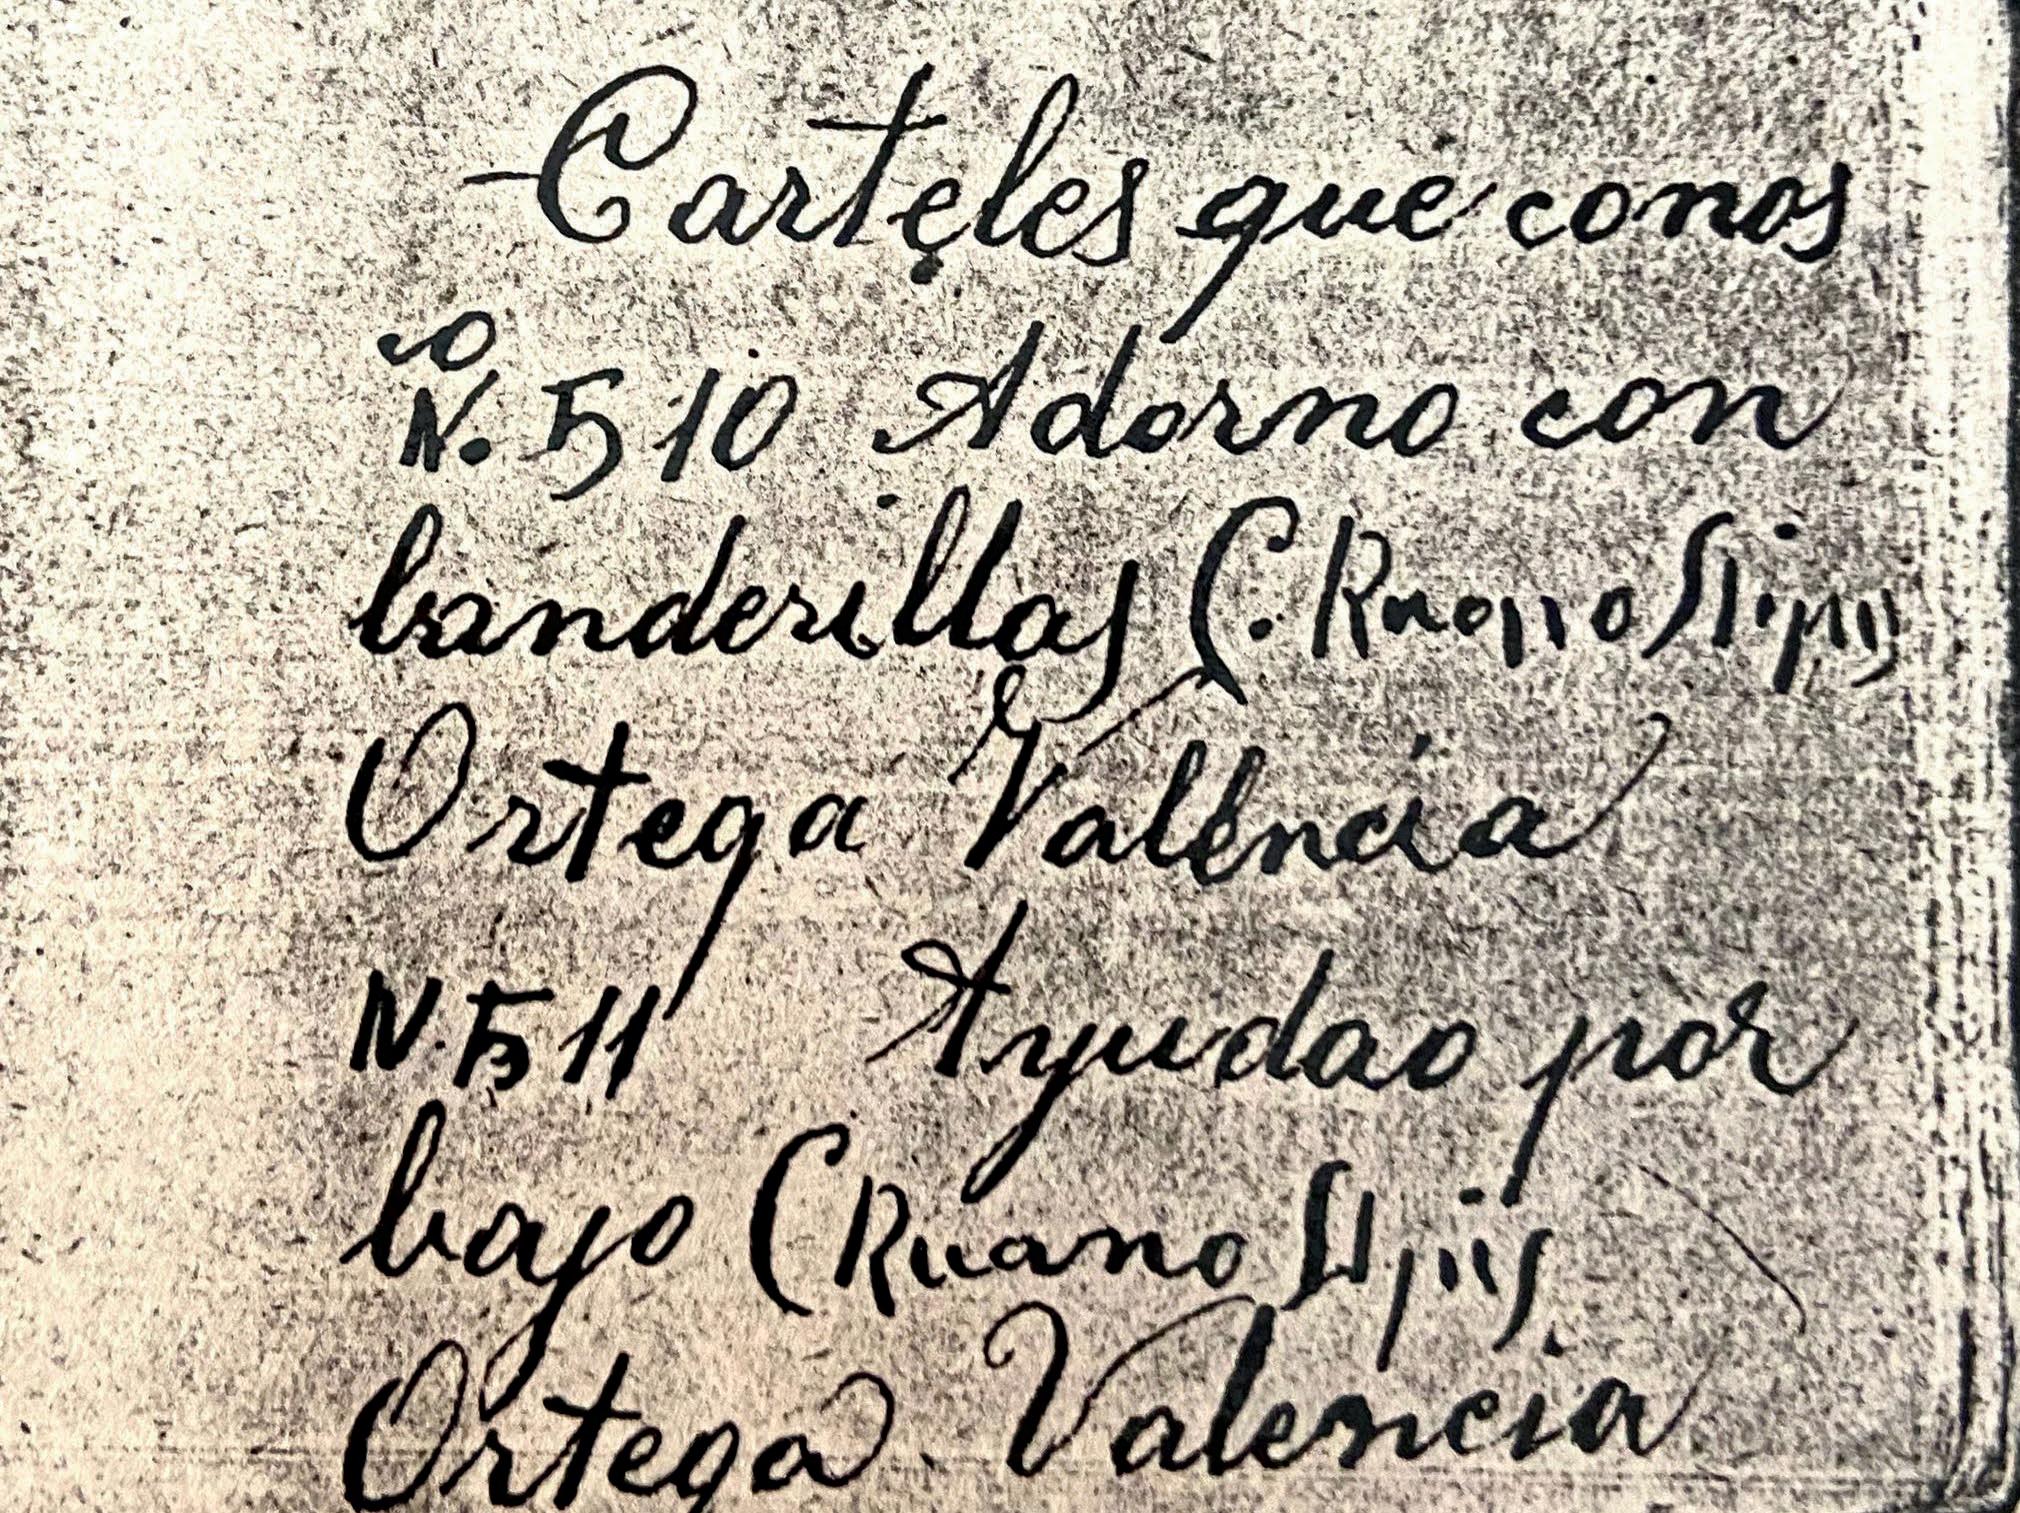 Carteles que conos
Nº. 510 Adorno con
banderillas C. Ruano Llopis
Ortega Valencia
N. 511 Ayudao por
bajo C Ruano Llopis
Ortega. Valencia